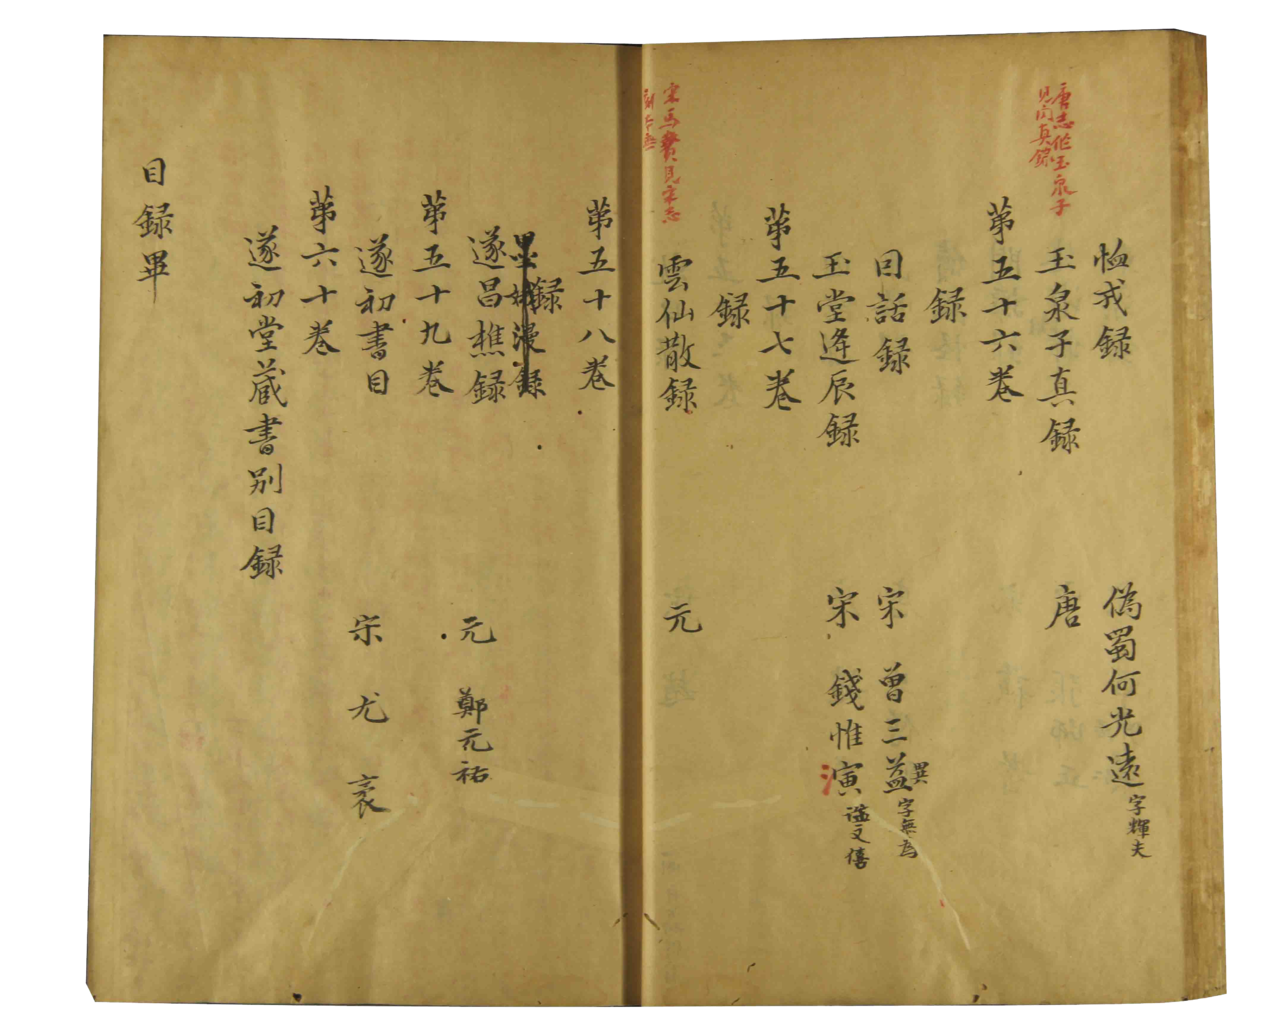 恤戎録 偽蜀何光遠字輝夫
唐志作玉泉子
見聞真錄
玉泉子真録 唐
第五十六卷
録
話録 宋 曾三益異字無為
玉堂逄辰録 宋 錢惟寅氵謚文僖
第五十七卷
録
宋馬贄見宋志
雲仙散録 元
第五十八卷
録
墨娥漫録
遂昌樵録 元 鄭元祐
第五十九卷
遂初書目 宋 尤袤
第六十卷
遂初堂藏書別目録
目録畢